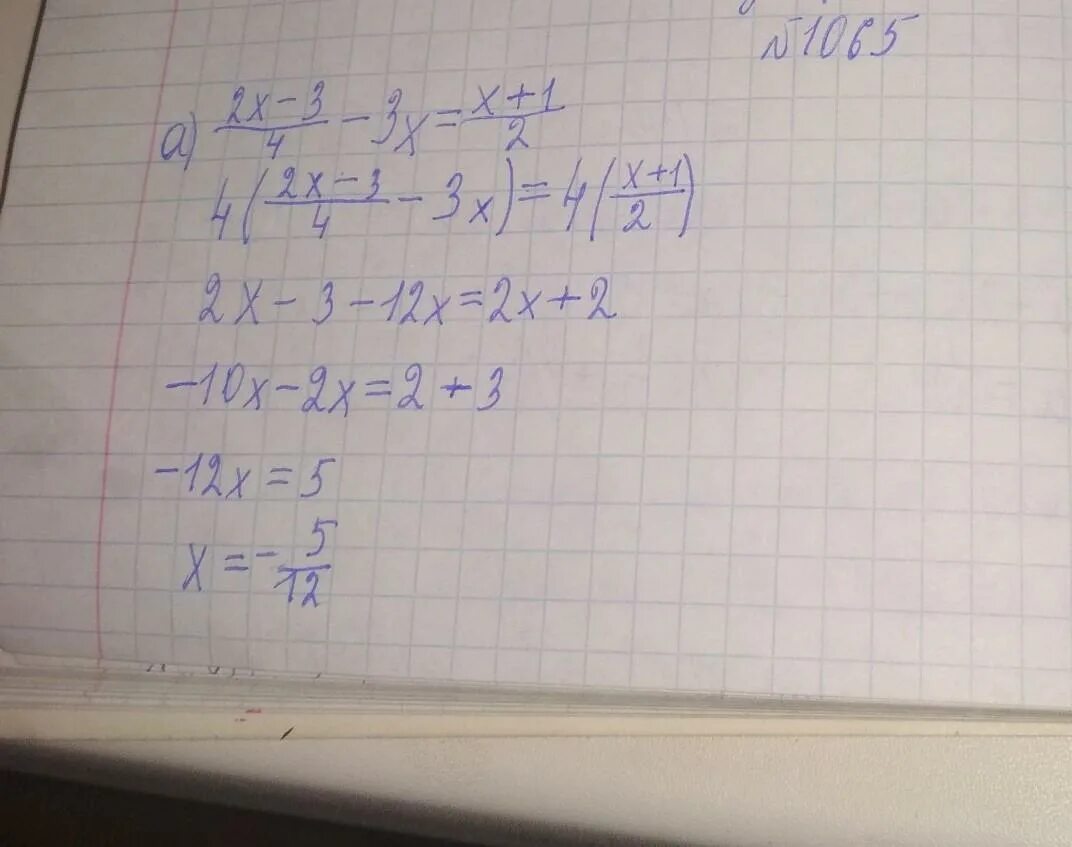 №1065
а) (2x-3)/4 - 3x = (x+1)/2
4((2x-3)/4 - 3x) = 4((x+1)/2)
2x - 3 - 12x = 2x + 2
-10x - 2x = 2 + 3
-12x = 5
x = - 5/12